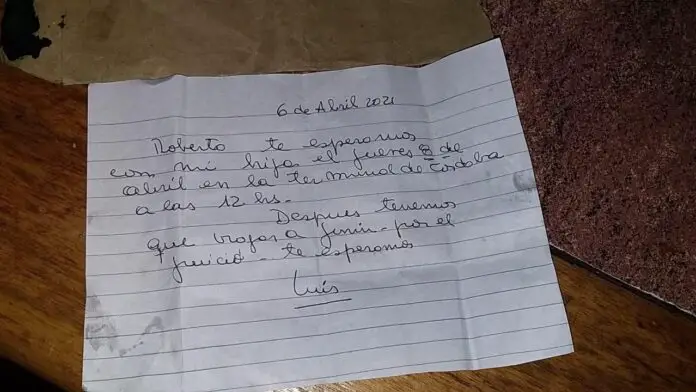 6 de Abril 2021
Roberto te esperamos
con mi hija el jueves 8 de
abril en la terminal de Cordoba
a las 12 hs.
Despues tenemos
que viajar a Junin - por el
juicio - te esperamos
Luis